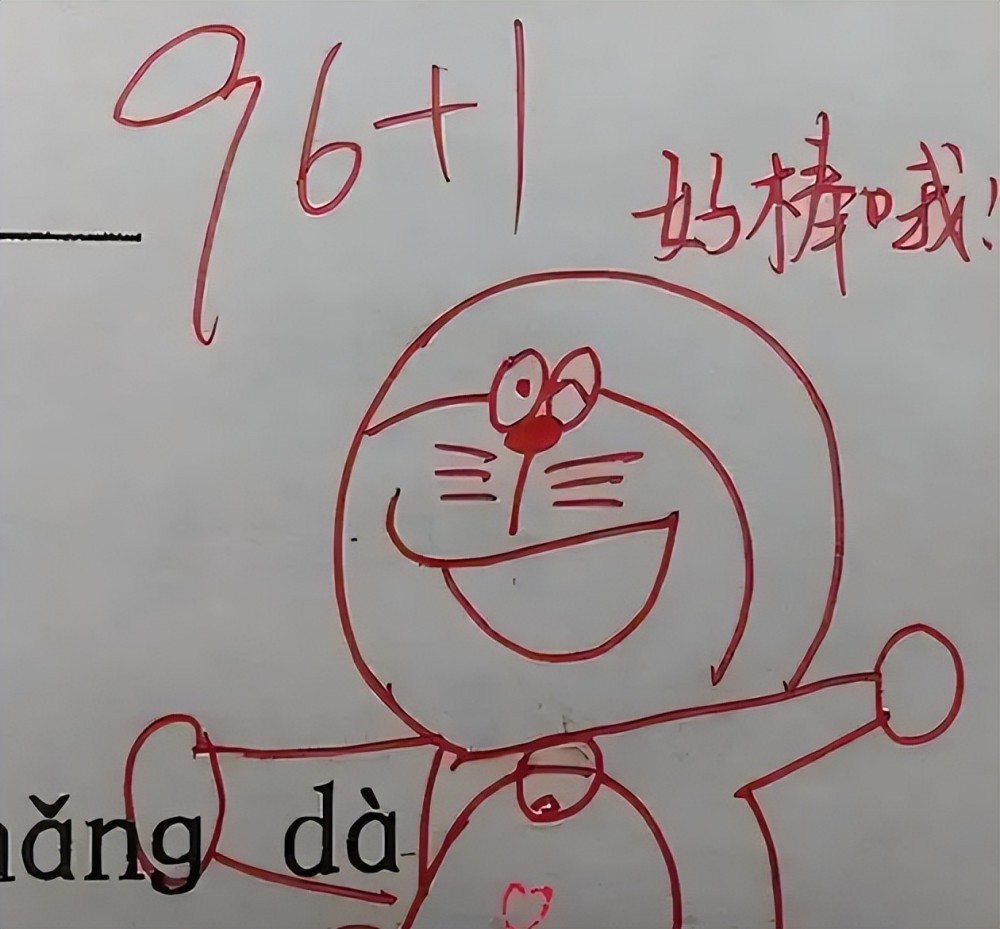 96+1
好棒哦!
ǎng dà